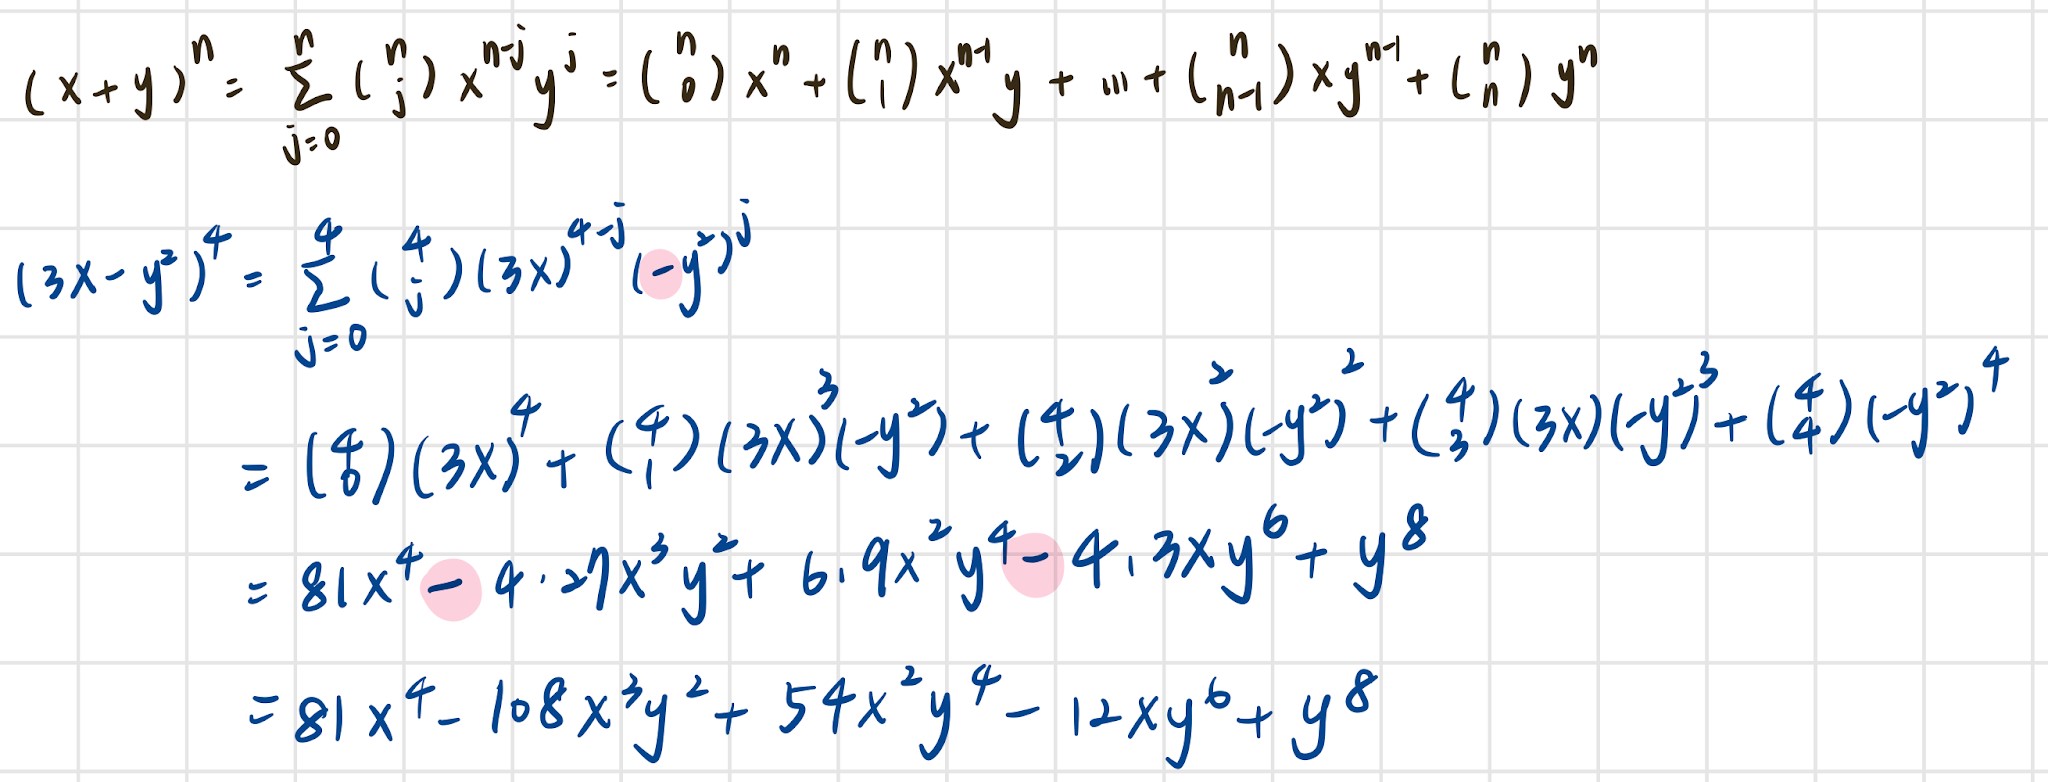 (x+y)^n = \sum_{j=0}^{n} \binom{n}{j} x^{n-j} y^j = \binom{n}{0} x^n + \binom{n}{1} x^{n-1} y + ... + \binom{n}{n-1} x y^{n-1} + \binom{n}{n} y^n
(3x-y^2)^4 = \sum_{j=0}^{4} \binom{4}{j} (3x)^{4-j} (-y^2)^j
= \binom{4}{0} (3x)^4 + \binom{4}{1} (3x)^3 (-y^2) + \binom{4}{2} (3x)^2 (-y^2)^2 + \binom{4}{3} (3x) (-y^2)^3 + \binom{4}{4} (-y^2)^4
= 81x^4 - 4·27x^3y^2 + 6·9x^2y^4 - 4·3xy^6 + y^8
= 81x^4 - 108x^3y^2 + 54x^2y^4 - 12xy^6 + y^8